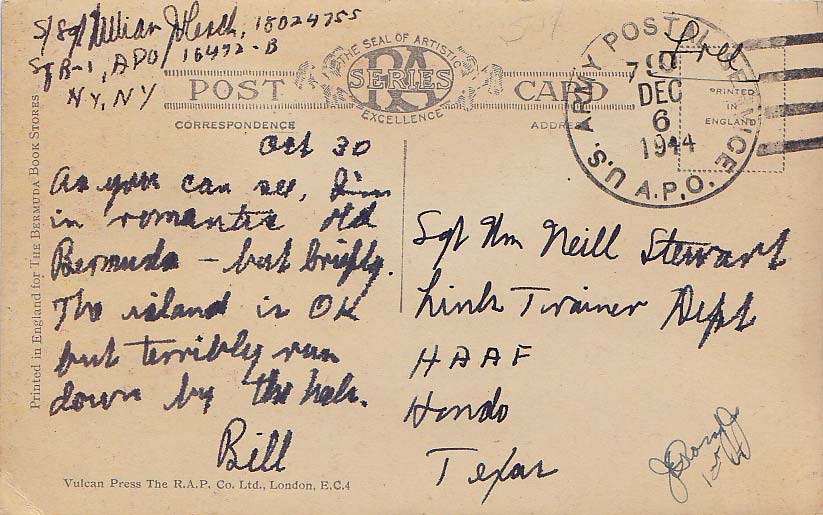 S/Sgt William J. 18024755
Sq B-1, APO 16472-B
NY, NY
Free
THE SEAL OF ARTISTIC
EXCELLENCE
RA
SERIES
POST CARD
CORRESPONDENCE
ADDRESS
PRINTED
IN
ENGLAND
U.S. ARMY POSTAL SERVICE
A.P.O.
DEC
6
1944
Printed in England for THE BERMUDA BOOK STORES
Oct 30
As you can see, I'm
in romantic old
Bermuda – but briefly.
The island is OK
but terribly run
down by the
Bill
Sgt Wm Neill Stewart
Link Trainer Dept
HAAF
Hondo
Texas
Vulcan Press The R.A.P. Co. Ltd., London, E.C.4